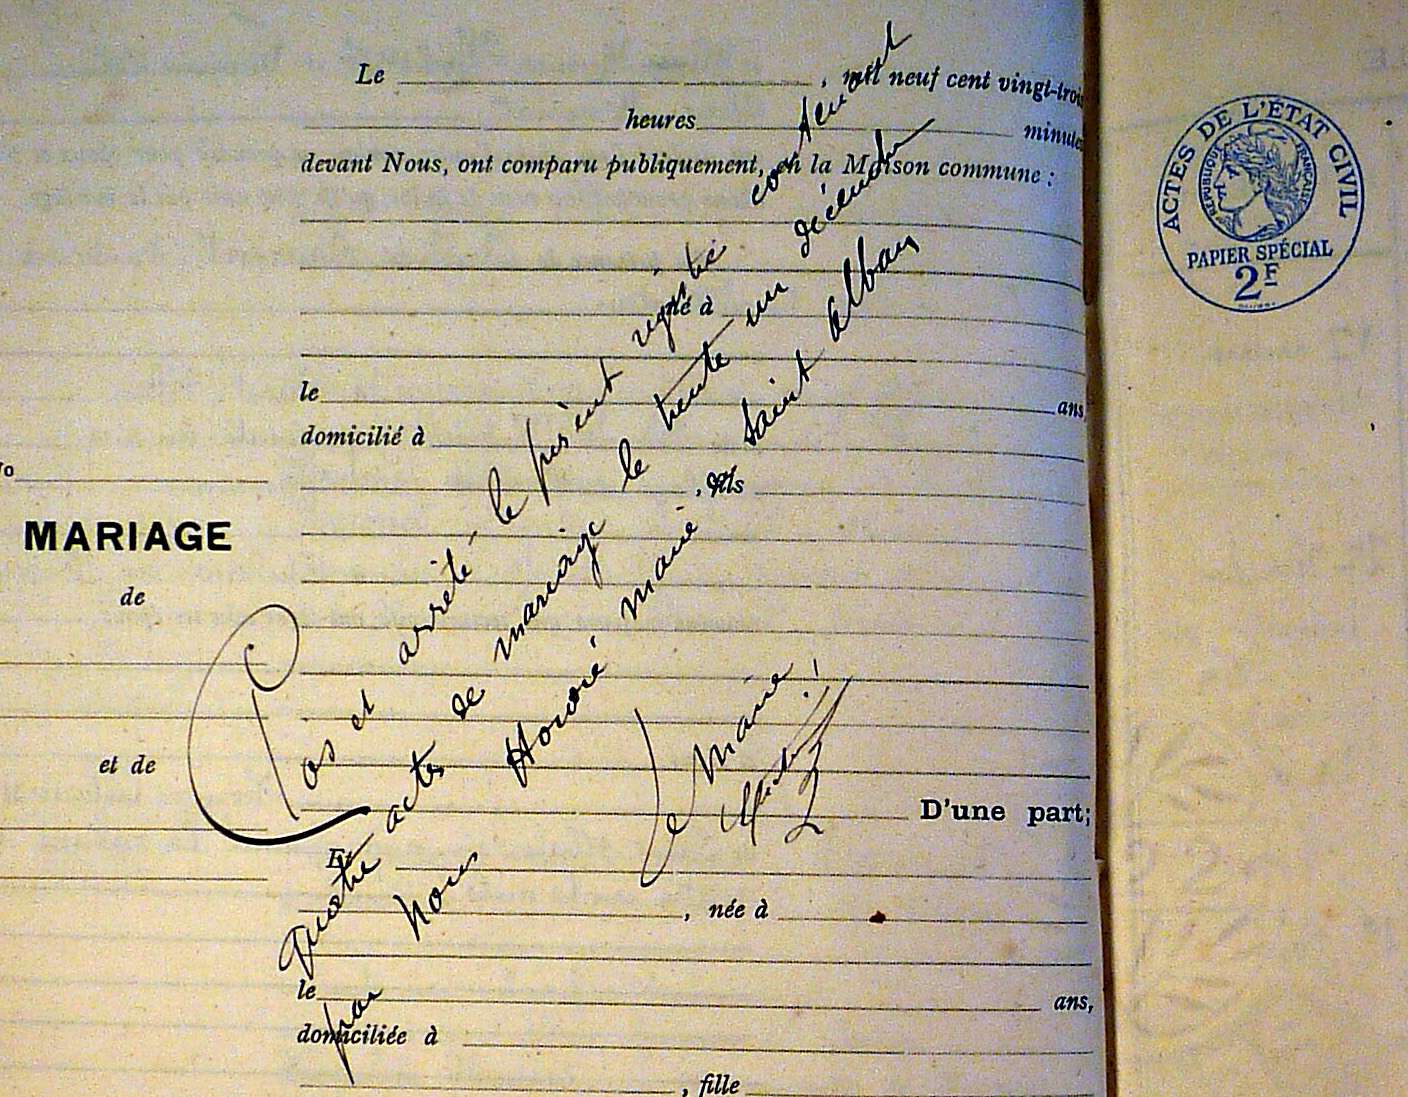 Le , mil neuf cent vingt-trois
heures minutes
devant Nous, ont comparu publiquement, en la Maison commune :
né à
le ans
domicilié à
, fils
MARIAGE
de
et de
D'une part;
Et
, née à
le ans,
domiciliée à
, fille
Clos et arrêté le présent registre contenant
quatre actes de mariage le trente un décembre
par nous Honoré maire Saint Alban
Le Maire,
ACTES DE L'ÉTAT CIVIL
RÉPUBLIQUE FRANÇAISE
PAPIER SPÉCIAL
2F